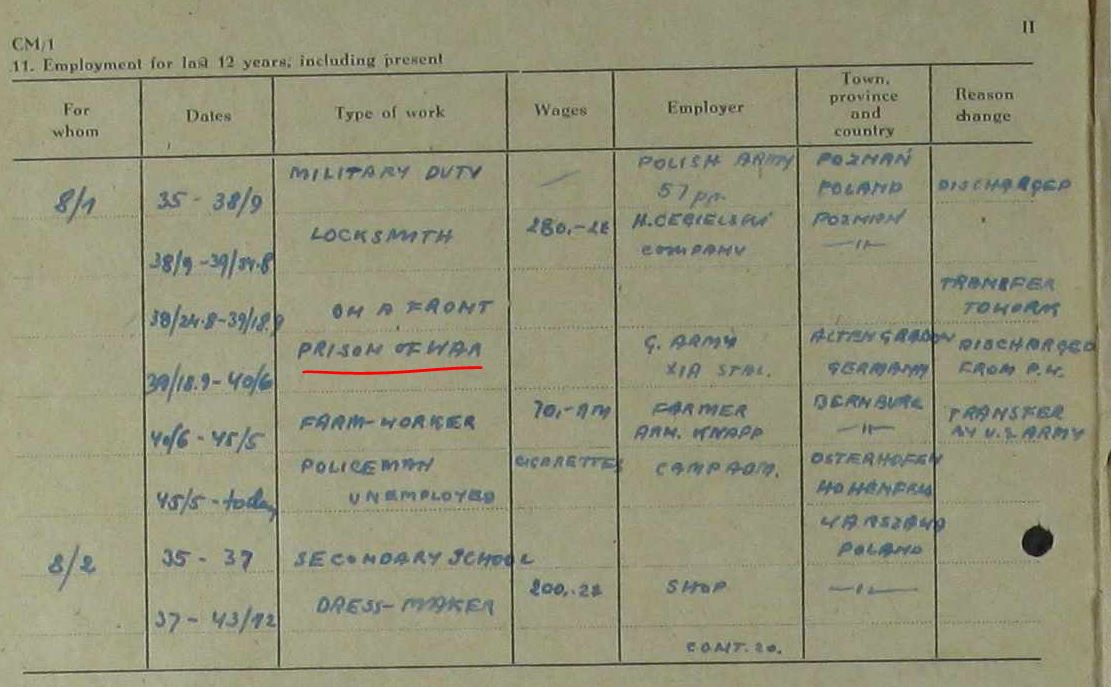 II
CM/1
11. Employment for last 12 years, including present
For whom | Dates | Type of work | Wages | Employer | Town, province and country | Reason change
8/1 | 35 - 38/9 | MILITARY DUTY | — | POLISH ARMY 57 pp. | POZNAŃ POLAND | DISCHARGED
38/9 - 39/24.8 | LOCKSMITH | 280.- ZŁ | H. CEGIELSKI COMPANY | POZNAN —"—
39/24.8 - 39/18.9 | ON A FRONT | TRANSFER TO WORK
39/18.9 - 40/6 | PRISON OF WAR | G. ARMY XIA STAL. | ALTENGRABOW GERMANY | DISCHARGED FROM P.W.
40/6 - 45/5 | FARM-WORKER | 70.- RM | FARMER ARM. KNAPP | BERNBURG —"— | TRANSFER BY U.S ARMY
45/5 - today | POLICEMAN UNEMPLOYED | CIGARETTES | CAMP ADM. | OSTERHOFEN HOHENFELS
8/2 | 35 - 37 | SECONDARY SCHOOL | WARSZAWA POLAND
37 - 43/12 | DRESS-MAKER | 200.- ZŁ | SHOP | —"—
CONT. 20.